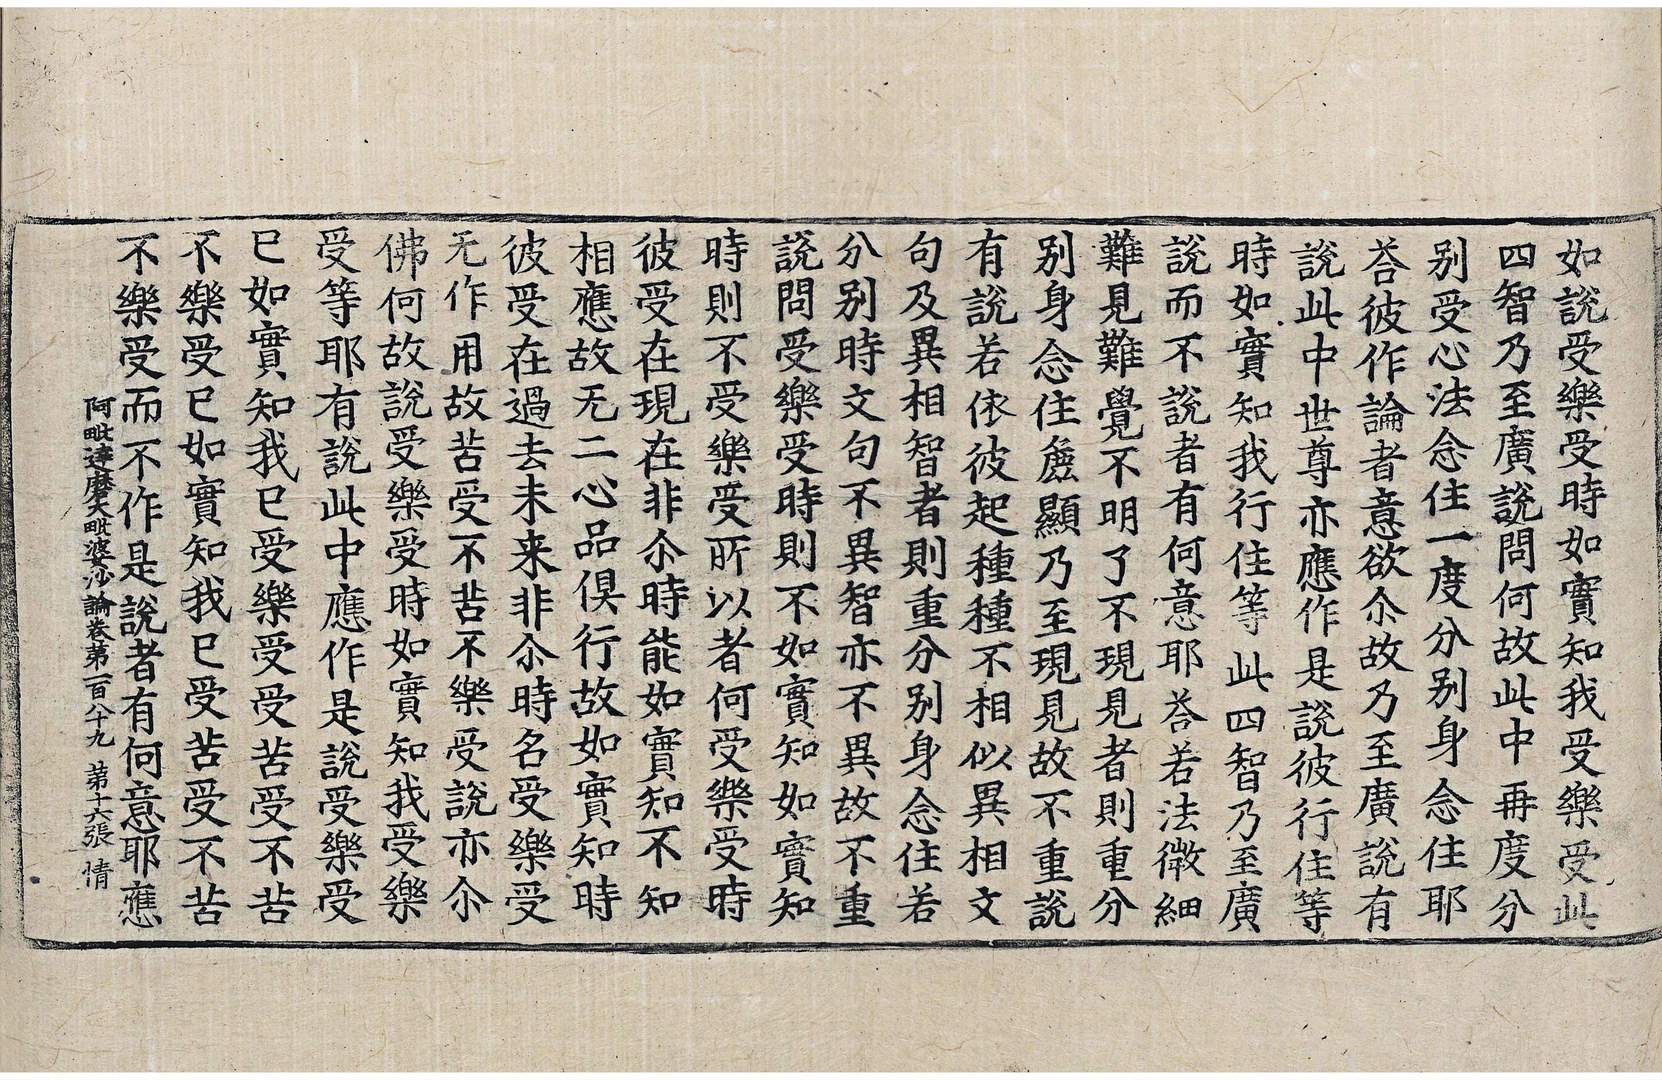 如說受樂受時如實知我受樂受此
四智乃至廣說問何故此中再度分
别受心法念住一度分别身念住耶
荅彼作論者意欲尒故乃至廣說有
說此中世尊亦應作是說彼行住等
時如實知我行住等此四智乃至廣
說而不說者有何意耶荅若法微細
難見難覺不明了不現見者則重分
别身念住麁顯乃至現見故不重說
有說若依彼起種種不相似異相文
句及異相智者則重分别身念住若
分别時文句不異智亦不異故不重
說問受樂受時則不如實知如實知
時則不受樂受所以者何受樂受時
彼受在現在非尒時能如實知不知
相應故无二心品俱行故如實知時
彼受在過去未来非尒時名受樂受
无作用故苦受不苦不樂受說亦尒
佛何故說受樂受時如實知我受樂
受等耶有說此中應作是說受樂受
已如實知我已受樂受受苦受不苦
不樂受已如實知我已受苦受不苦
不樂受而不作是說者有何意耶應
阿毗達磨大毗婆沙論卷第一百八十九 第十六張 情